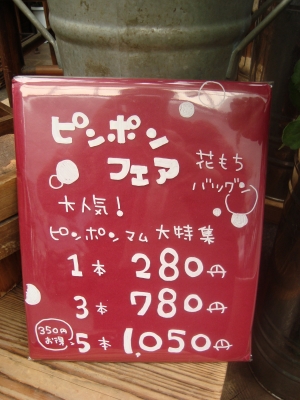 ピンポン
フェア
花もち
バツグン
大人気!
ピンポンマム大特集
1本 280円
3本 780円
350円
お得
5本 1,050円